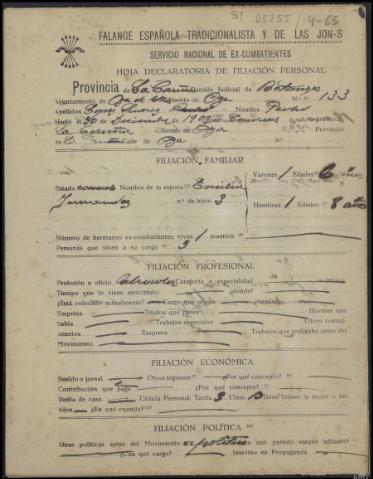 65255 / 4-65
FALANGE ESPAÑOLA TRADICIONALISTA Y DE LAS JON-S
SERVICIO NACIONAL DE EX-COMBATIENTES
HOJA DECLARATORIA DE FILIACIÓN PERSONAL
Provincia de La Coruña Partido Judicial de Betanzos
Ayuntamiento de Oza Partido de Oza N.º 133
Apellidos Suarez Nombre Pedro
Nació el 30 de Diciembre de 190
La Coruña Reside en Oza Provincia
Calle de Oza
FILIACIÓN FAMILIAR
Varones 1 Edades 6 años
Estado Nombre de la esposa Emilia
Fernandez n.º de hijos 3
Hembras 1 Edades 8 años
Número de hermanos ex-combatientes, vivos 1 muertos
Personas que viven a su cargo 3
FILIACIÓN PROFESIONAL
Profesión u oficio Labrador Categoría o especialidad
Tiempo que lo viene ejerciendo ¿dónde?
¿Está colocado actualmente? Cargo que ocupa
Empresa Títulos que posee Idiomas que
habla Trabajos especiales Otros conoci-
mientos Empresa Trabajos realizados antes del
Movimiento
FILIACIÓN ECONÓMICA
Sueldo o jornal Otros ingresos ¿Por qué concepto?
Contribución que paga ¿Por qué concepto?
Renta de casa Cédula Personal: Tarifa 3 Clase Tiene bienes la mujer o los
hijos ¿En qué cuantía?
FILIACIÓN POLÍTICA
Ideas políticas antes del Movimiento apolítico en qué partido estuvo afiliado?
¿Con qué cargo? Intervino en Propaganda